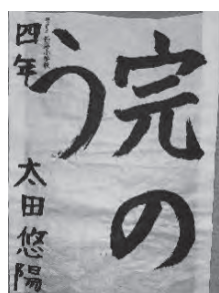 完の
う
四年 太田悠陽